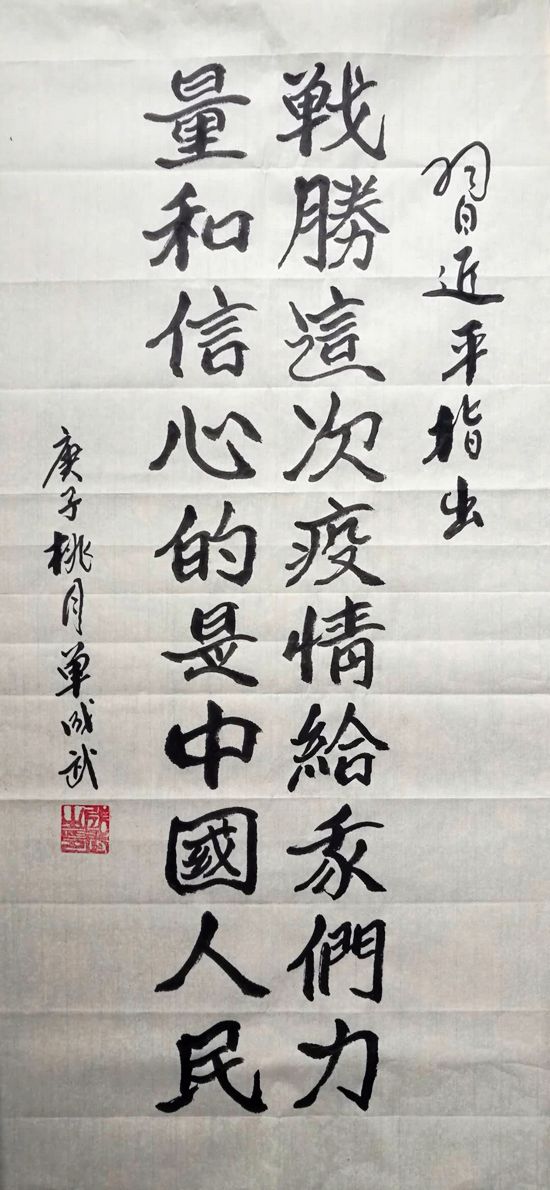 習近平指出
戦勝這次疫情給我們力
量和信心的是中國人民
庚子桃月单成武